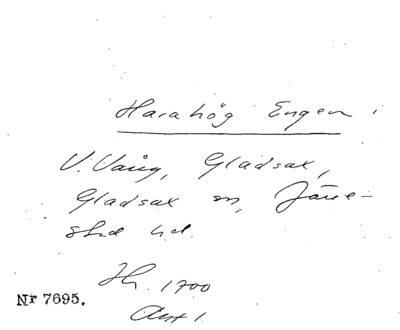 Harahög Engen
V. Vång, Gladsax,
Gladsax sn, Järre-
stad hd.
Jb. 1700
Akt 1.
Nr 7695.